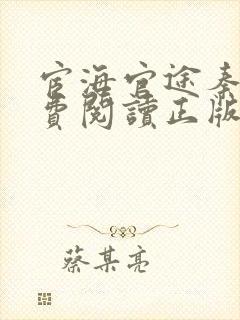 宦海官途秦
費閱讀正版
蔡某亮